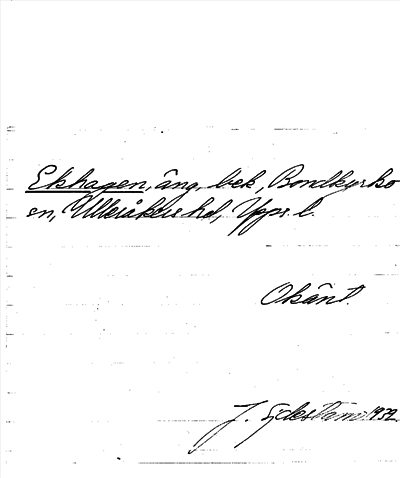 Ekhagen, äng, bek, Bondkyrko
sn, Ulleråkers hd, Upps. l.
Okänt.
J. Sjdestam 1932.